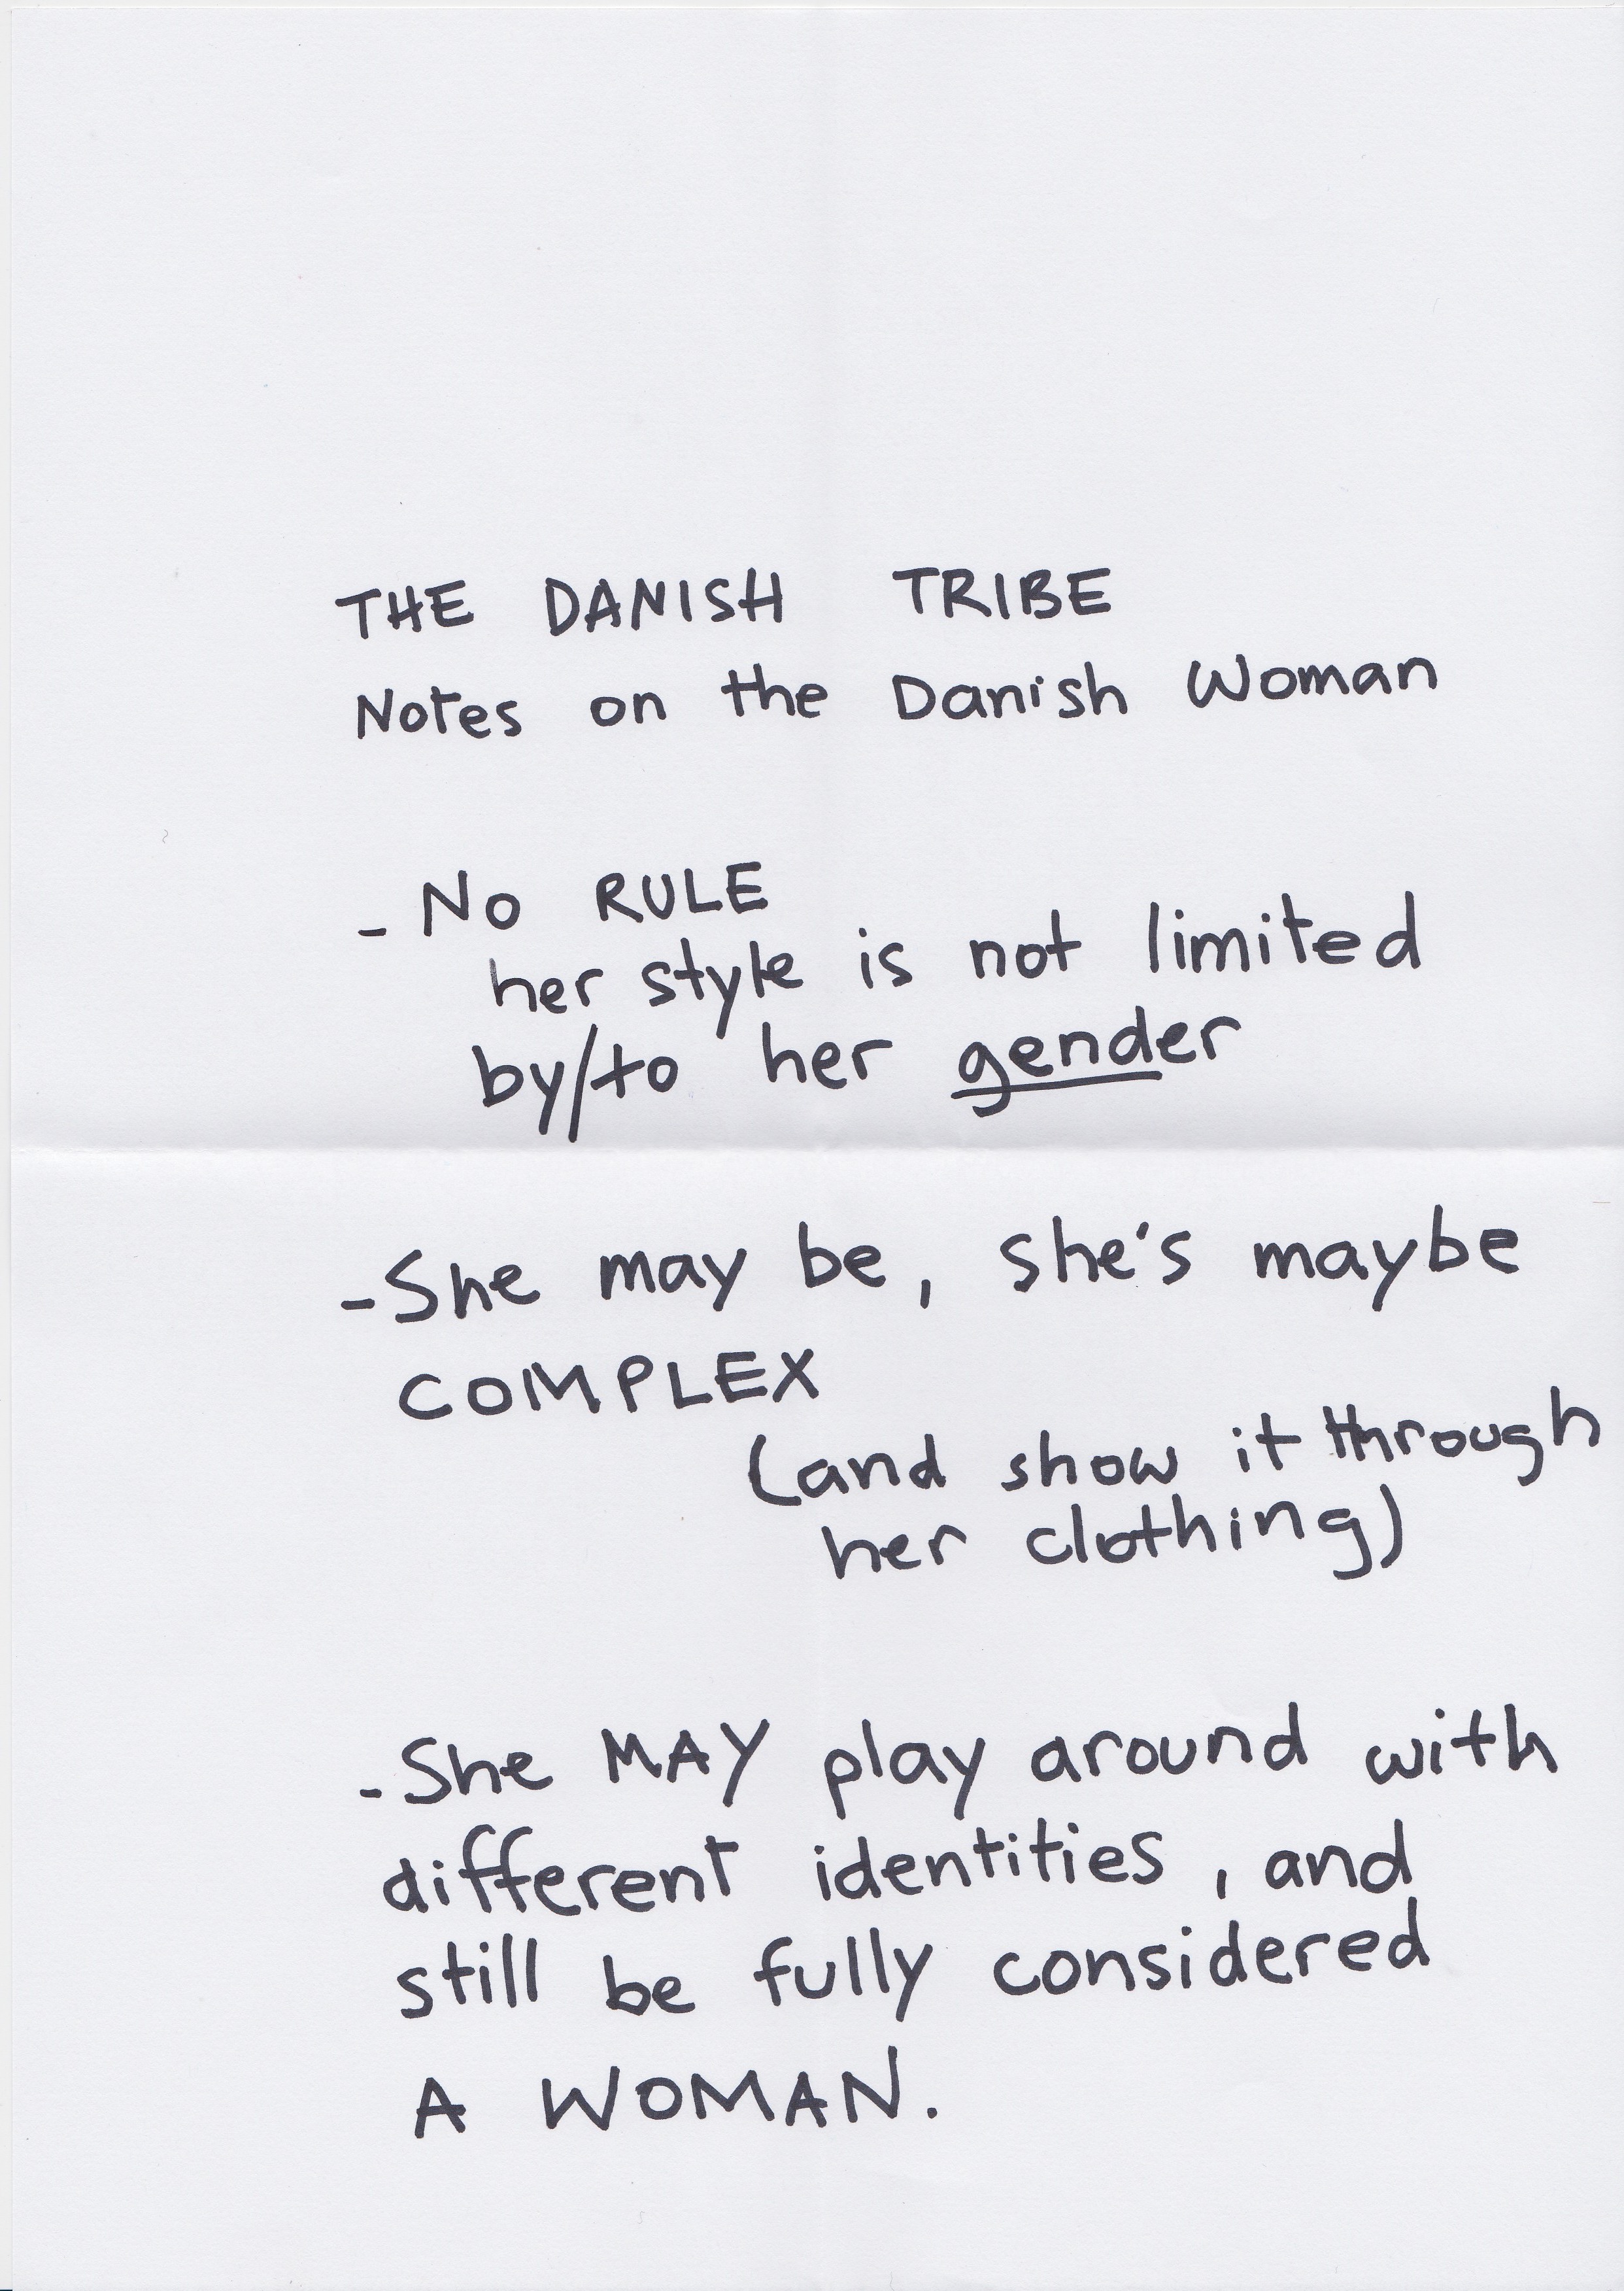 THE DANISH TRIBE
Notes on the Danish Woman
- No RULE
her style is not limited
by/to her gender
- She may be, she's maybe
COMPLEX
(and show it through
her clothing)
- She MAY play around with
different identities, and
still be fully considered
A WOMAN.